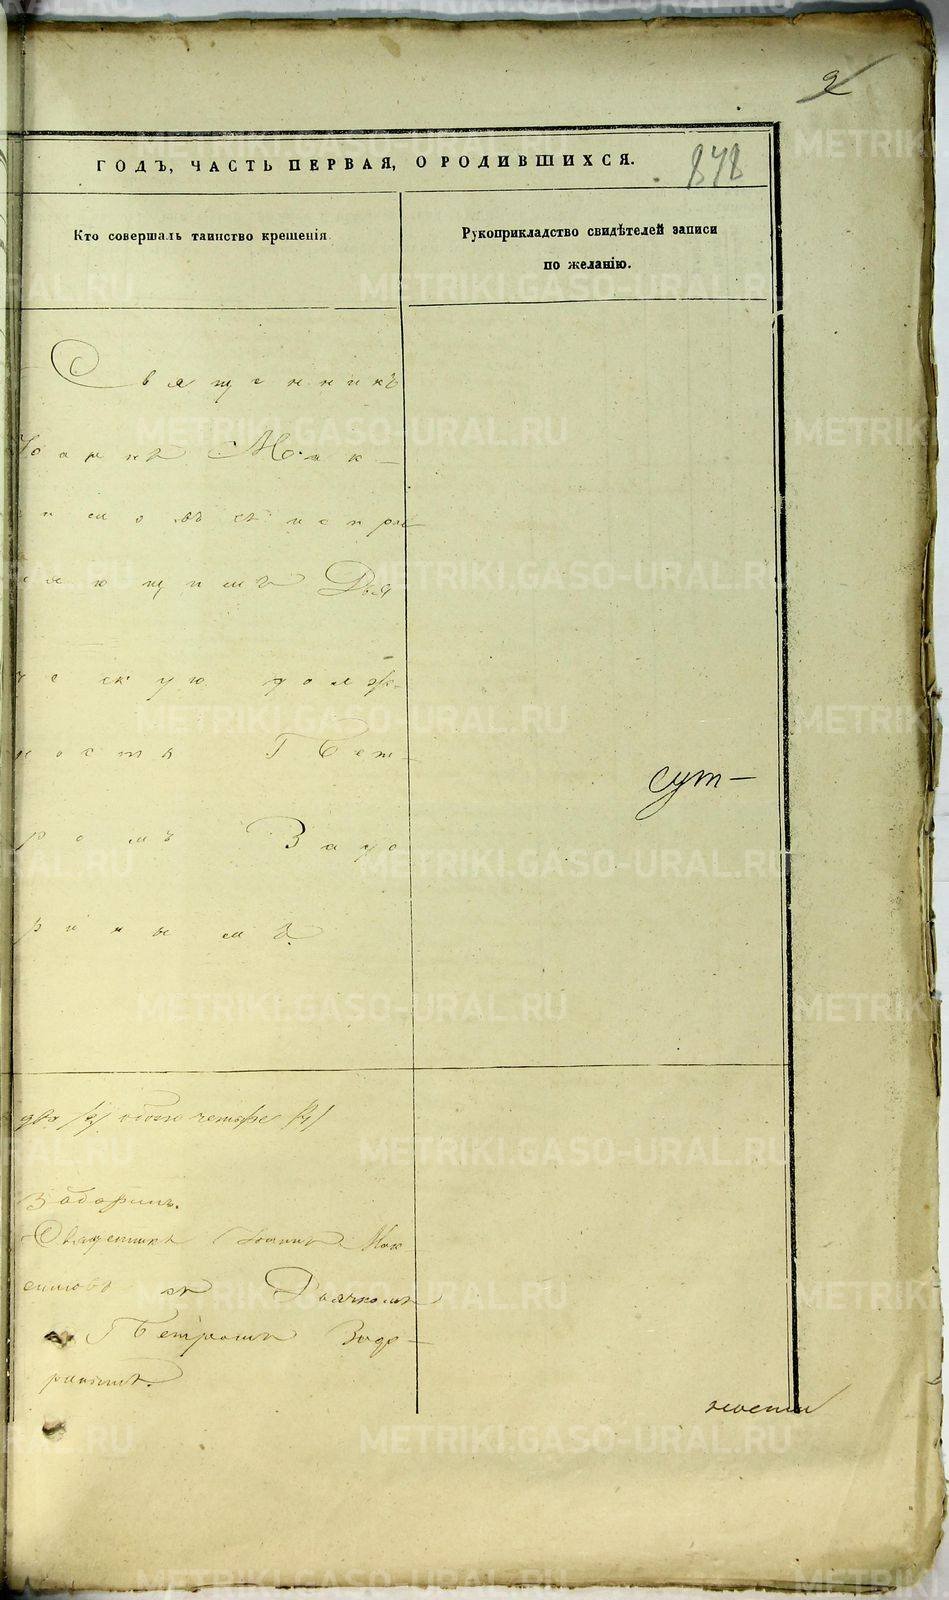 2
ГОДЪ, ЧАСТЬ ПЕРВАЯ, О РОДИВШИХСЯ.
878
Кто совершалъ таинство крещенія
Рукоприкладство свидѣтелей записи
по желанію.
Священникъ
Іоаннъ Мак-
симовъ съ исправ
ляющимъ Дья
ческую долж-
ность Пет-
ромъ Задо
ринымъ.
сут-
два /2/ обоего четыре /4/
Задоринъ.
Священникъ Іоаннъ Мак
симовъ съ Дьячкомъ
Петромъ Задо-
ринымъ.
ности
METRIKI.GASO-URAL.RU